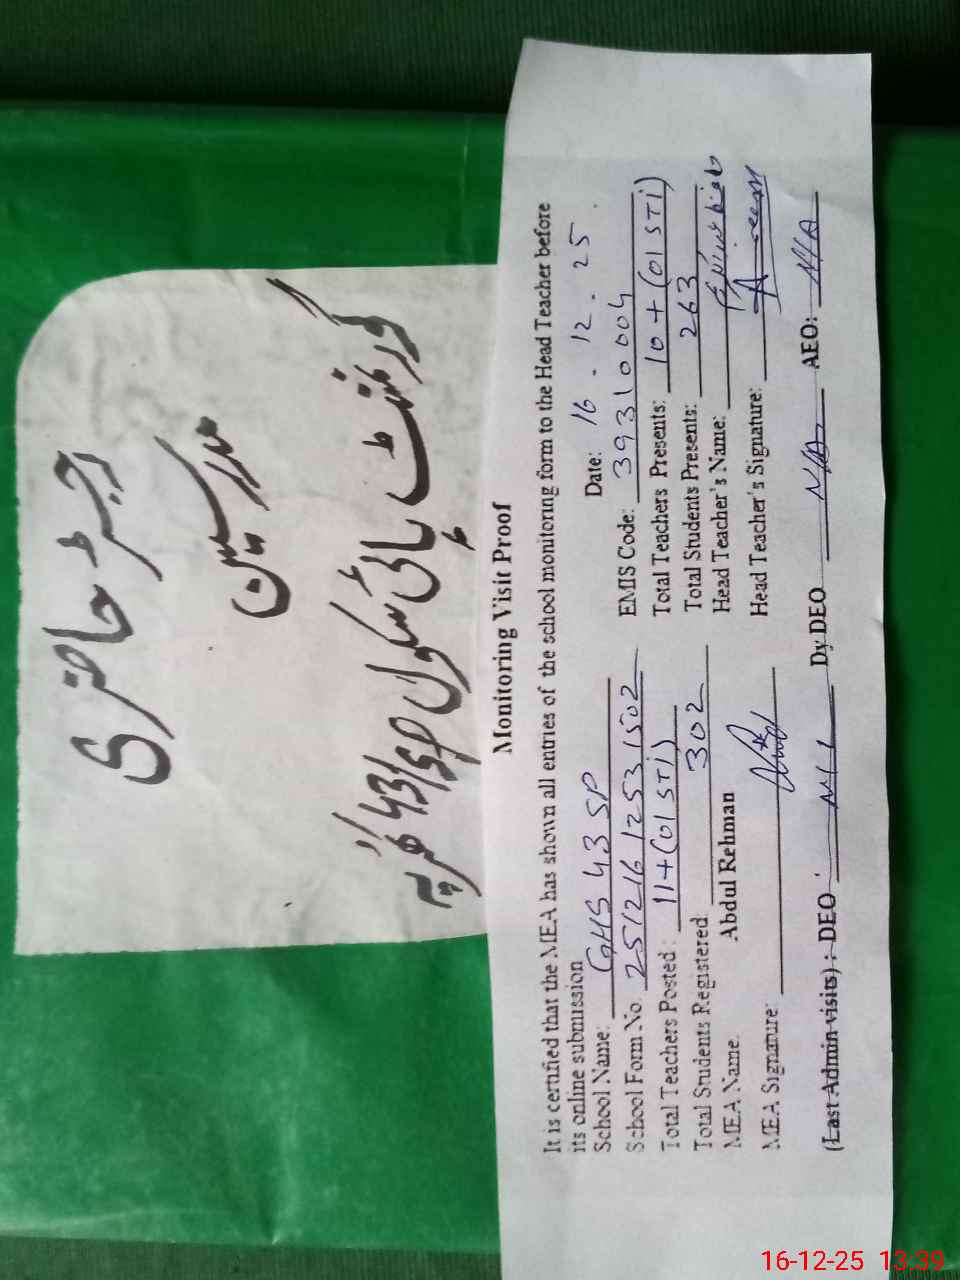 رجسٹر حاضری
مدرسین
گورنمنٹ ہائی سکول 43/SP
Monitoring Visit Proof
It is certified that the MEA has shown all entries of the school monitoring form to the Head Teacher before
its online submission
Date: 16 . 12 . 25
School Name: GHS 43 SP EMIS Code: 39310004
School Form No. 25121612531502 Total Teachers Presents: 10 + (01 STI)
Total Teachers Posted : 11 + (01 STI) Total Students Presents: 263
Total Students Registered: 302 Head Teacher's Name:
MEA Name. Abdul Rehman Head Teacher's Signature:
MEA Signature:
(Last Admin visits) : DEO : Nil Dy DEO N/A AEO: N/A
16-12-25 13:39